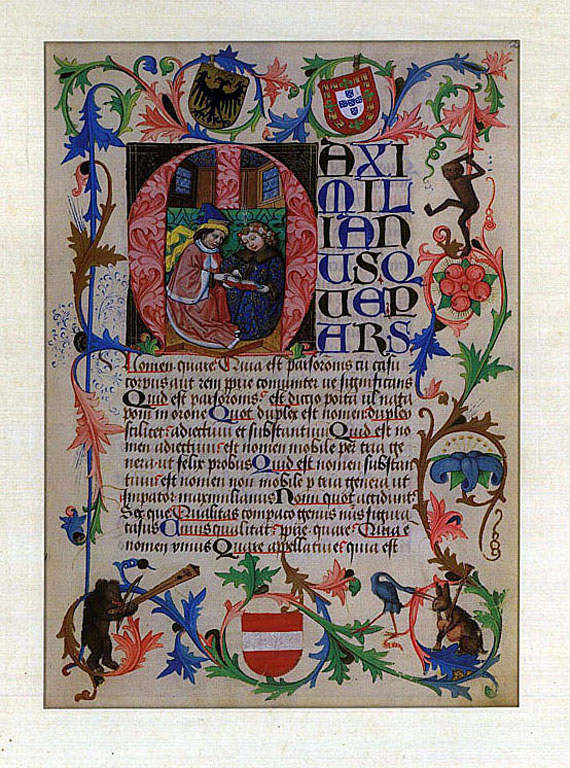 MAXI
MILI
IAN
USQ
UEP
ARS
Nomen quare Quia est pars oronis cu casu
corpus aut rem prie comuniter ue significans
Quid est pars oronis est dictio posita ul nata
poni in orone Quot duplex est nomen duplex
scilicet adiectiuu et substantiuu Quid est no
men adiectiuu est nomen mobile per tria ge
nera ut felix probus Quid est nomen substan
tiuu est nomen non mobile p tria genera ut
Impator maximilianus Nomi quot accidunt
Sex que Qualitas compaco genus nus figura
casus Cuius qualitat prie quare Quia e
nomen vnius Quare appellatiue quia est